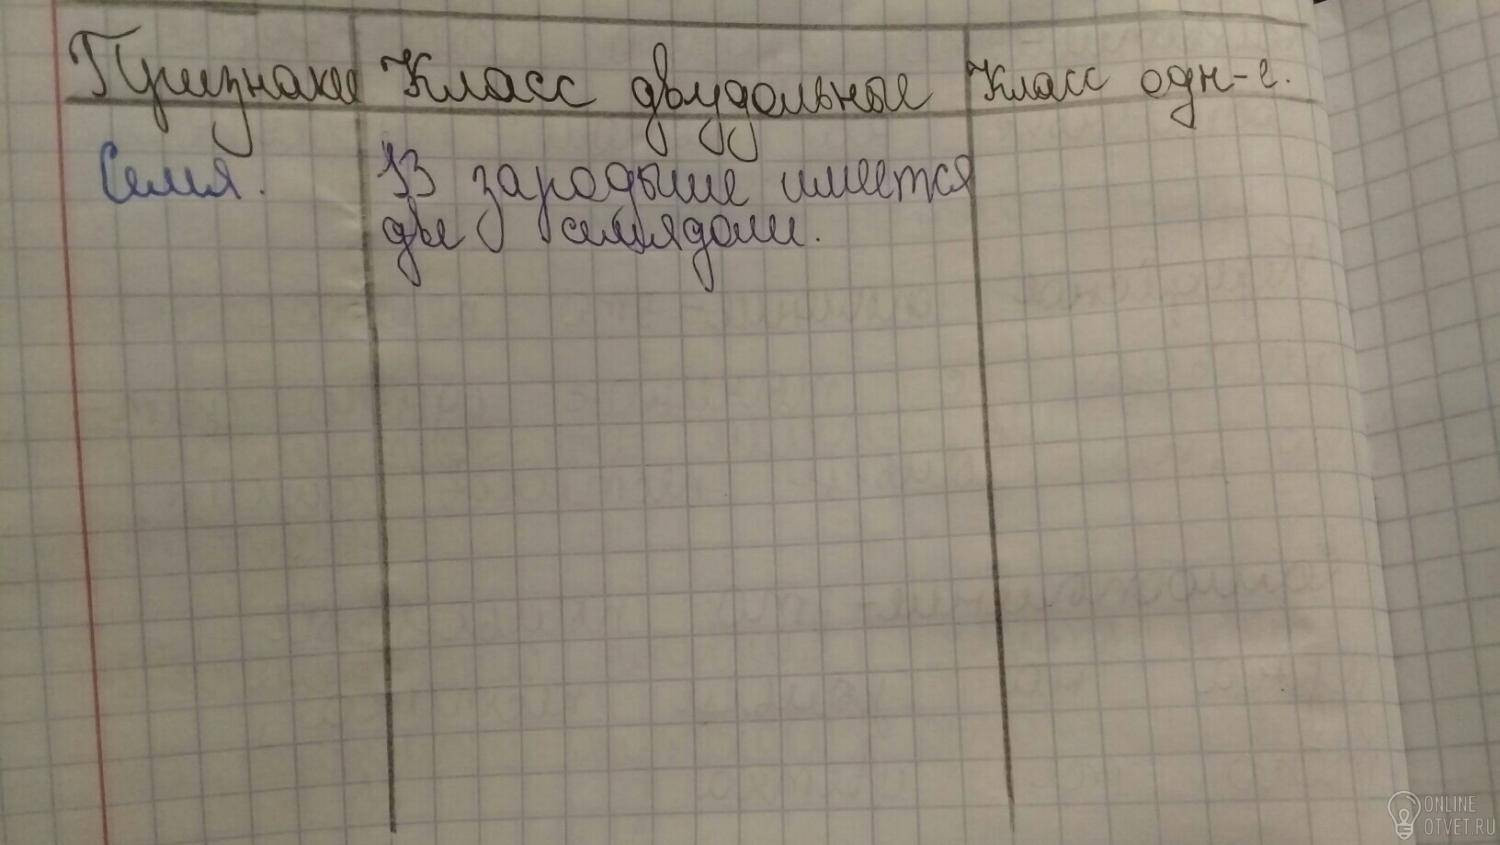 Признаки Класс двудольные Класс одн-е.
Семя. В зародыше имеется
две семядоли.
ONLINE
OTVET.RU